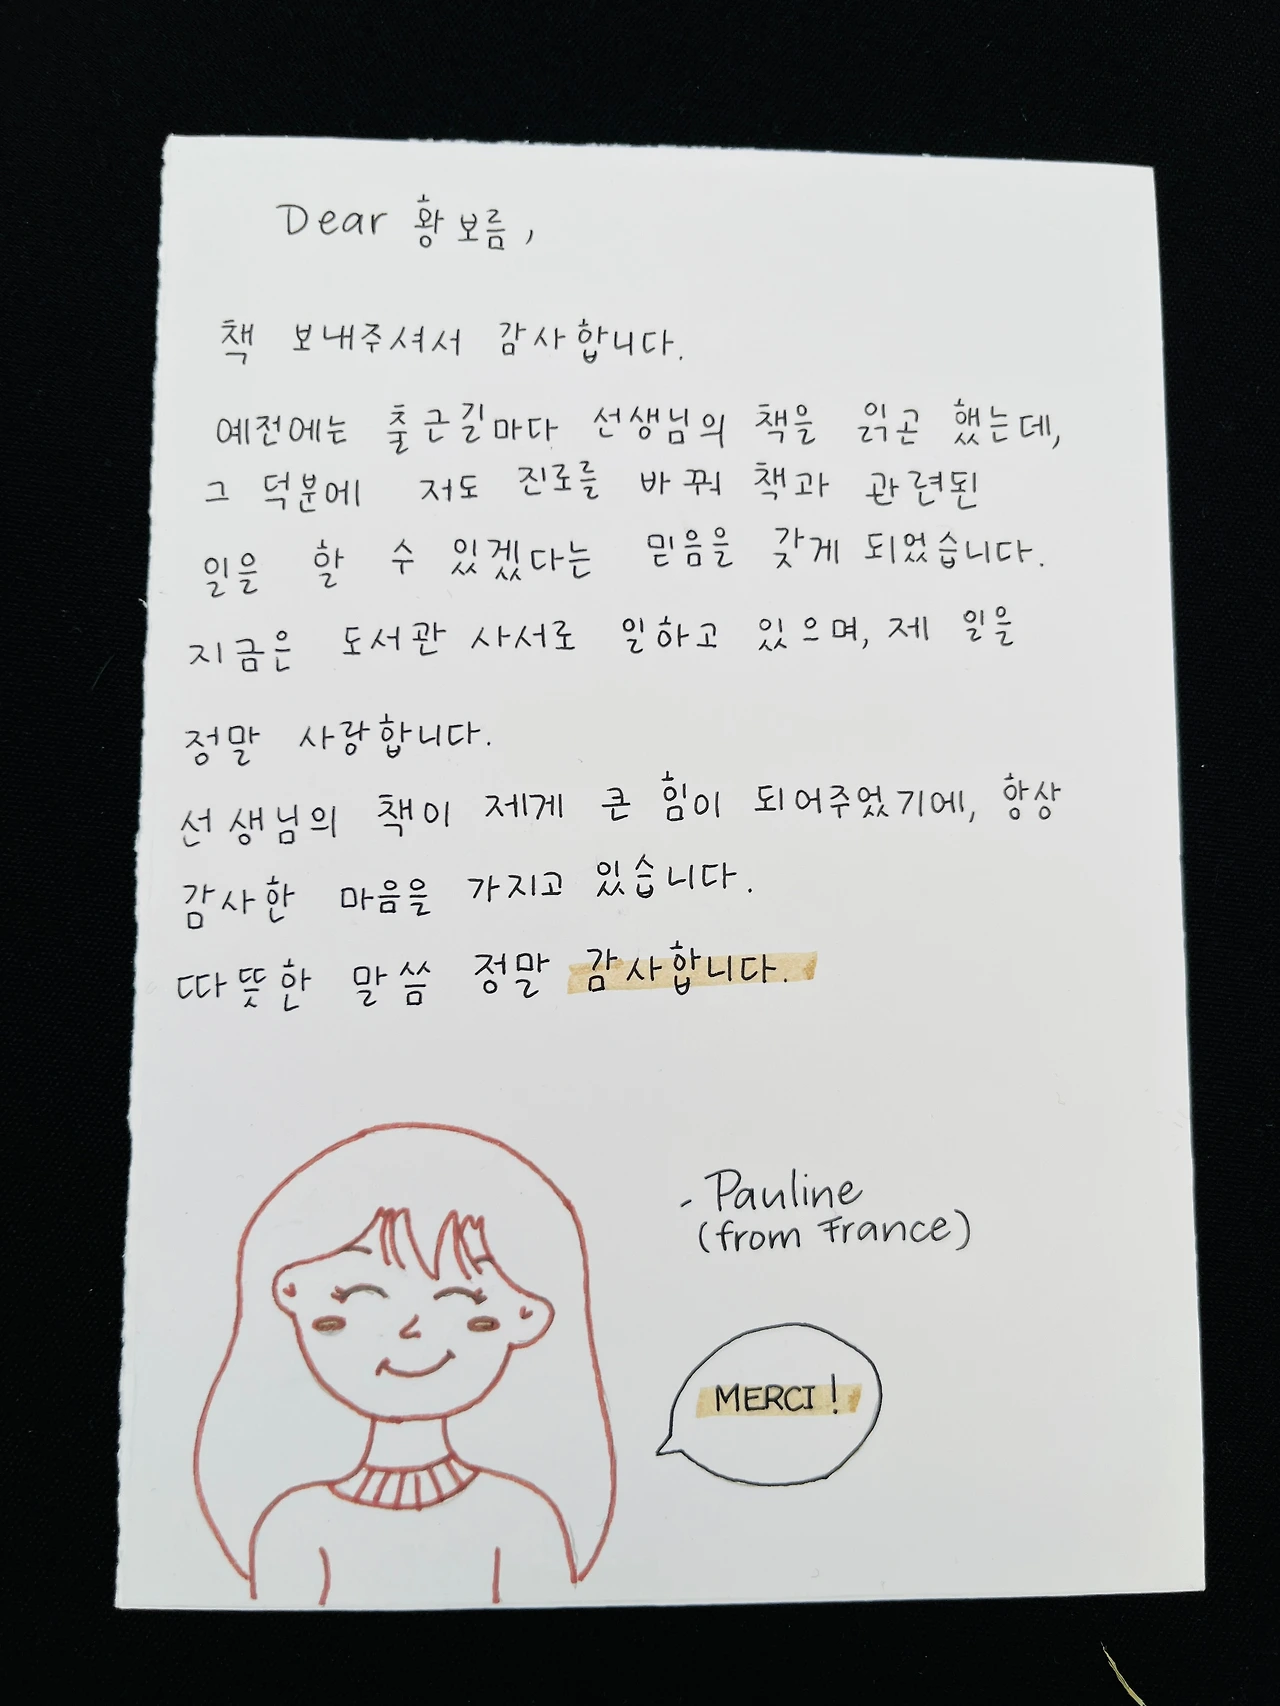 Dear 황보름,
책 보내주셔서 감사합니다.
예전에는 출근길마다 선생님의 책을 읽곤 했는데,
그 덕분에 저도 진로를 바꿔 책과 관련된
일을 할 수 있겠다는 믿음을 갖게 되었습니다.
지금은 도서관 사서로 일하고 있으며, 제 일을
정말 사랑합니다.
선생님의 책이 제게 큰 힘이 되어주었기에, 항상
감사한 마음을 가지고 있습니다.
따뜻한 말씀 정말 감사합니다.
- Pauline
(from France)
MERCI !